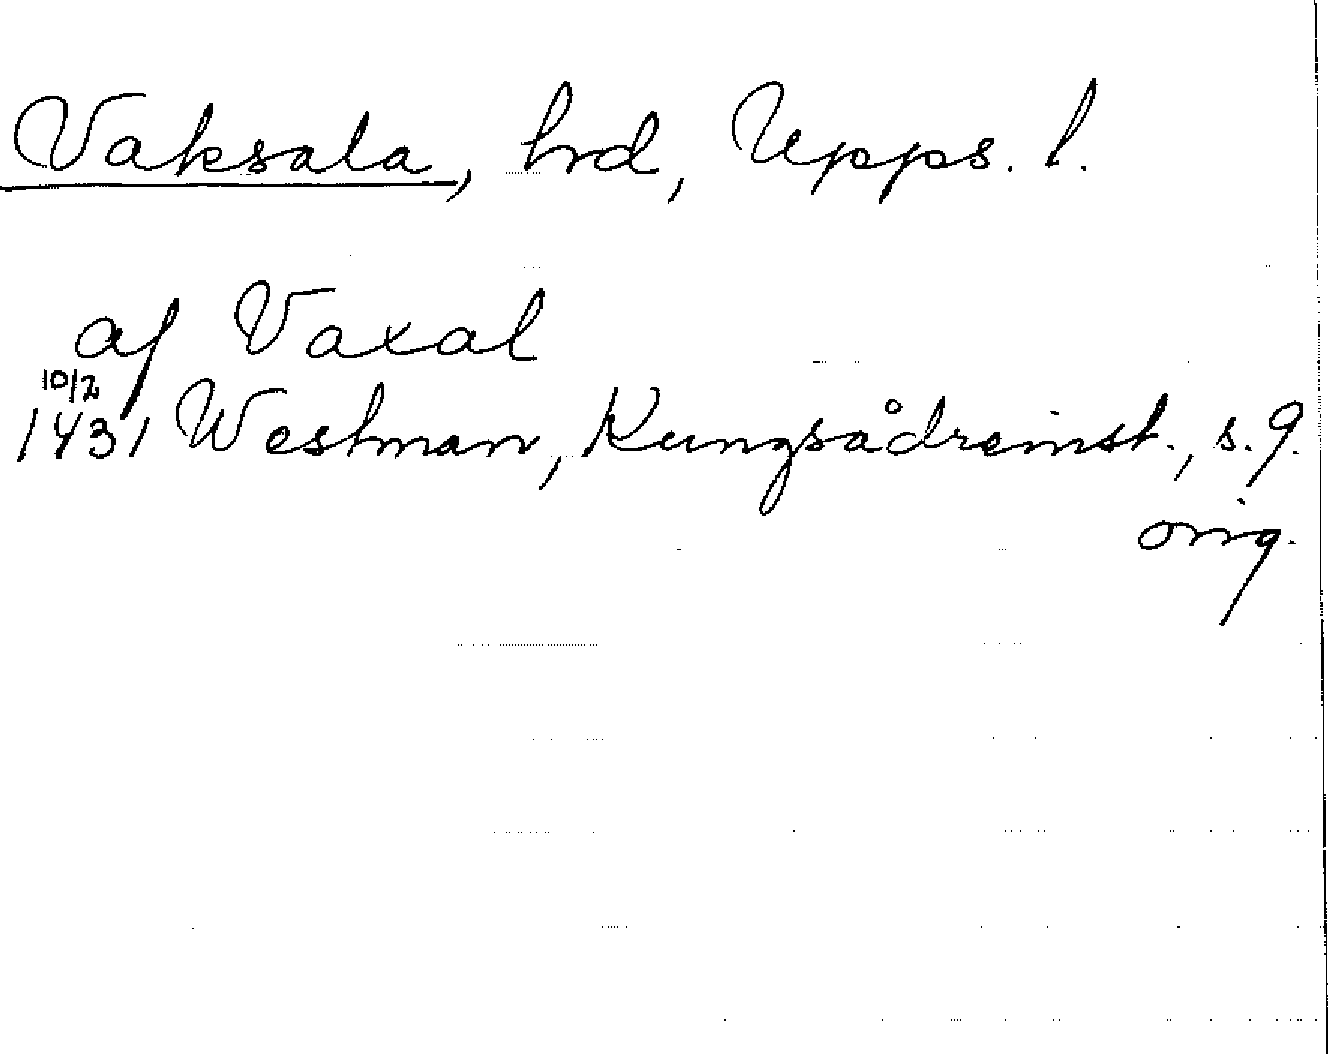 Vaksala, hrd, Upps. l.
af Vaxal
10/2
1431 Westman, Kungsådreinst., s. 9.
orig.